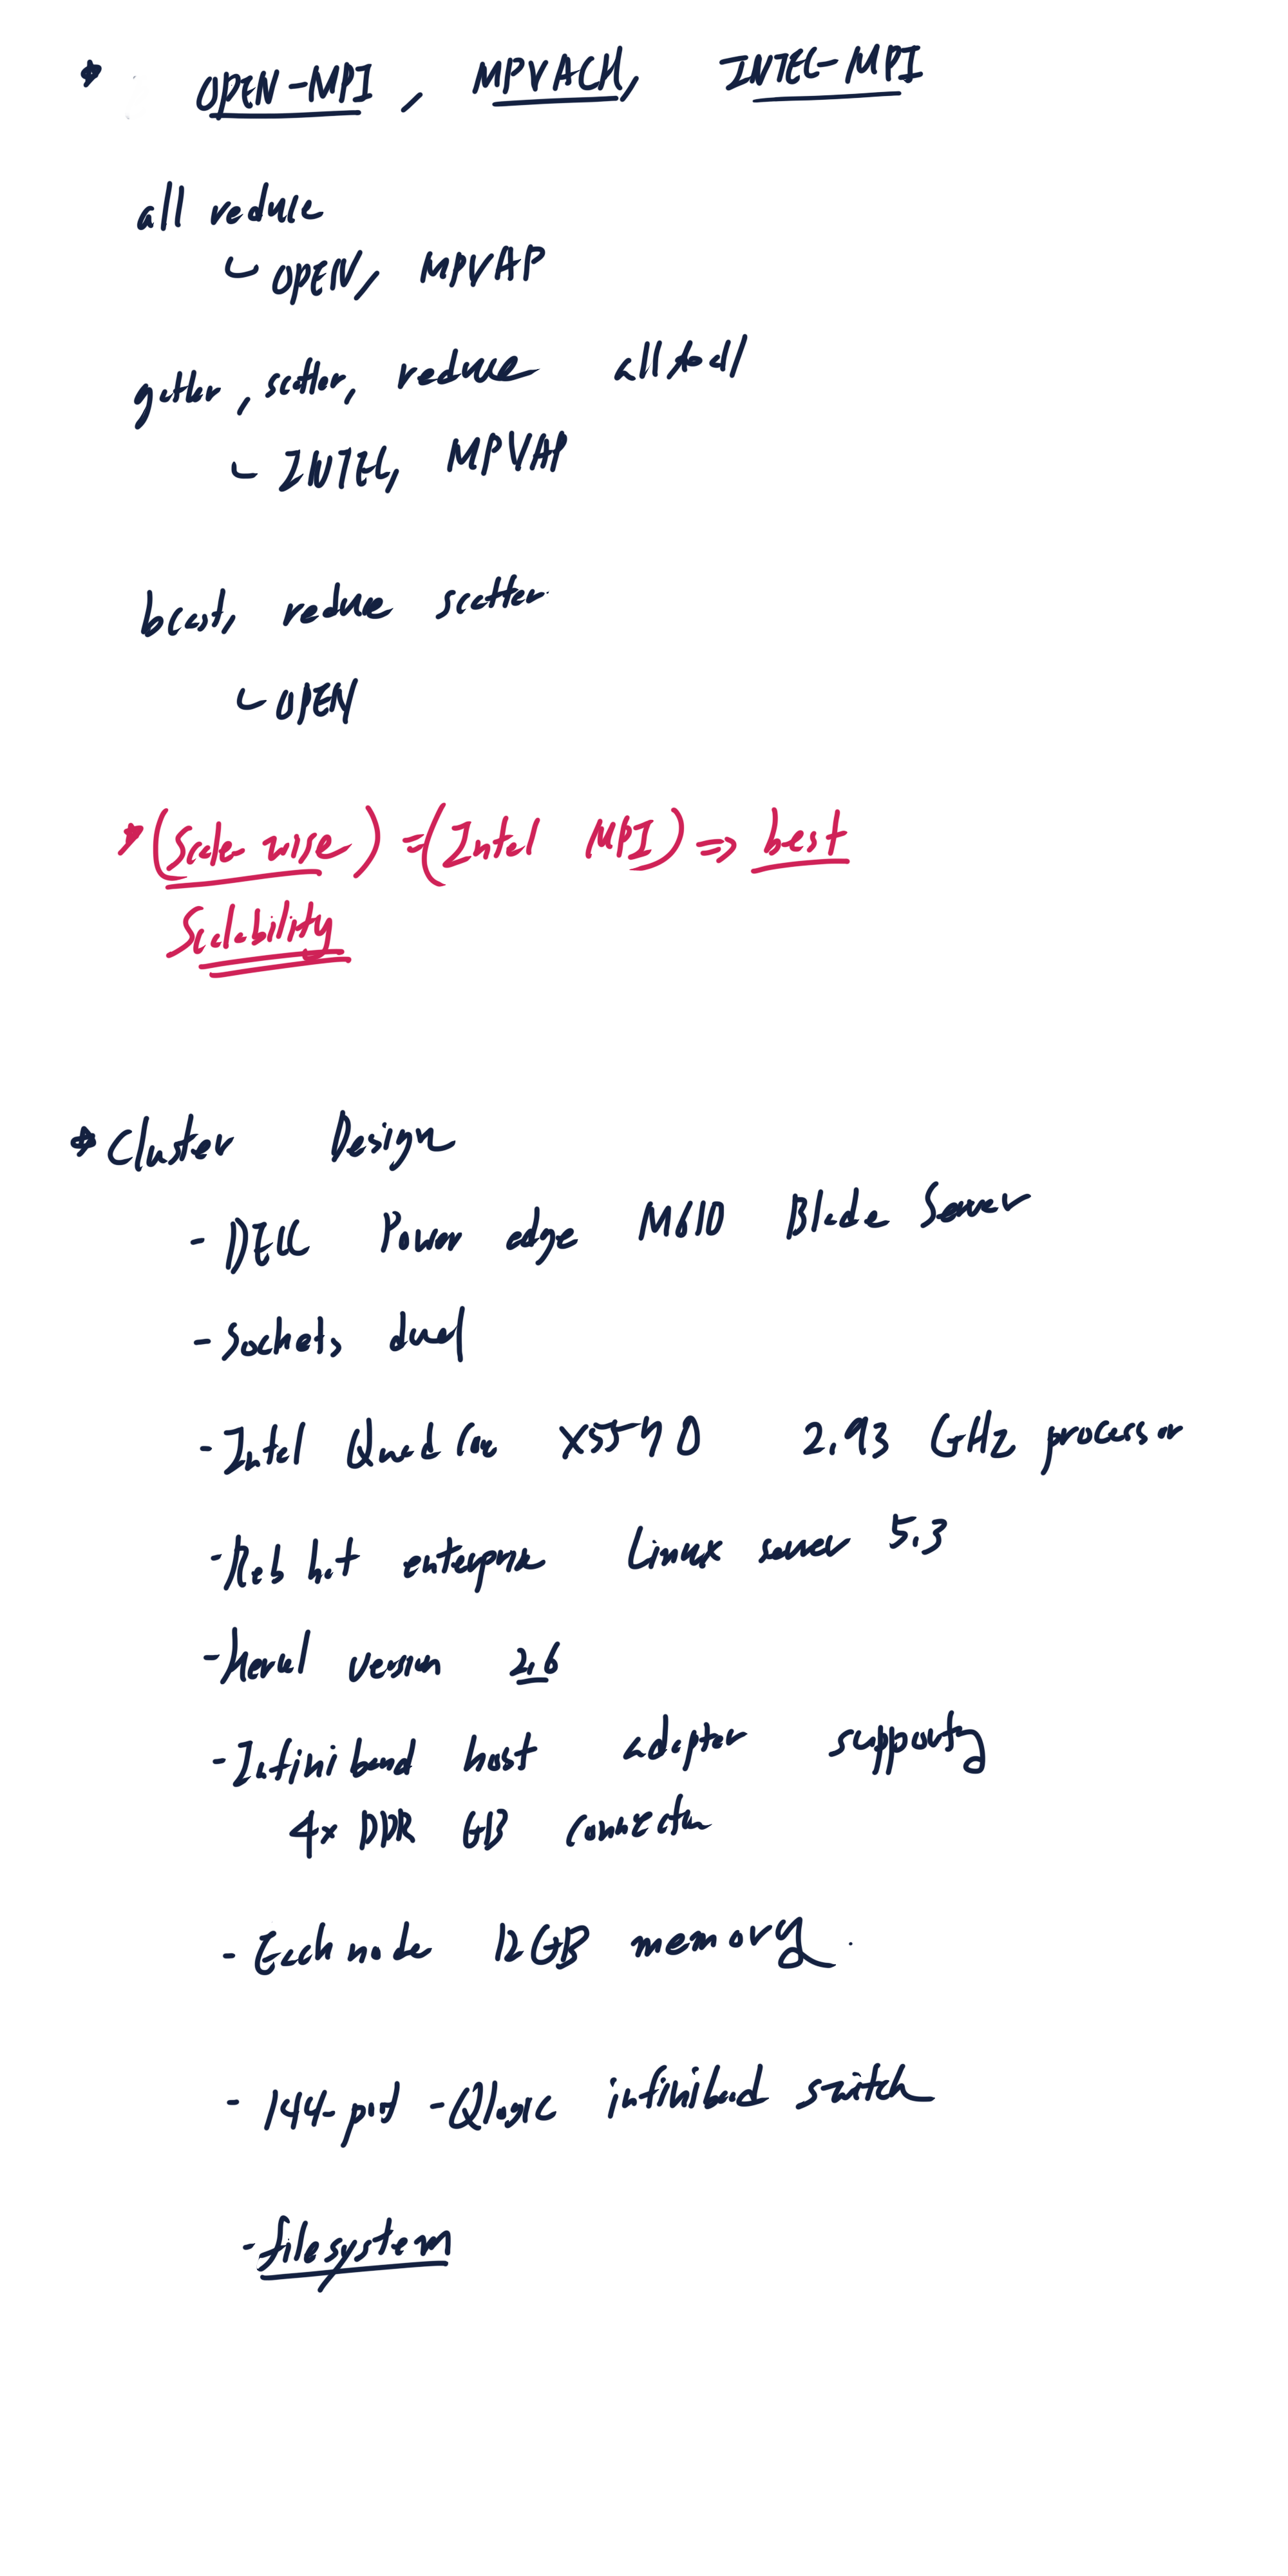 * OPEN-MPI, MPVACH, INTEL-MPI
all reduce
↳ OPEN, MPVAP
gather, scatter, reduce alltoall
↳ INTEL, MPVAP
bcast, reduce scatter
↳ OPEN
* (Scale-wise) = (Intel MPI) => best
Scalability
* Cluster Design
- DELL Power edge M610 Blade Server
- Sockets dual
- Intel Quad Core X5570 2.93 GHz processor
- Red hat enterprise Linux server 5.3
- kernel version 2.6
- Infiniband host adapter supporty
4x DDR connectn
- Each node 12GB memory.
- 144-port -Qlogic infiniband switch
- filesystem